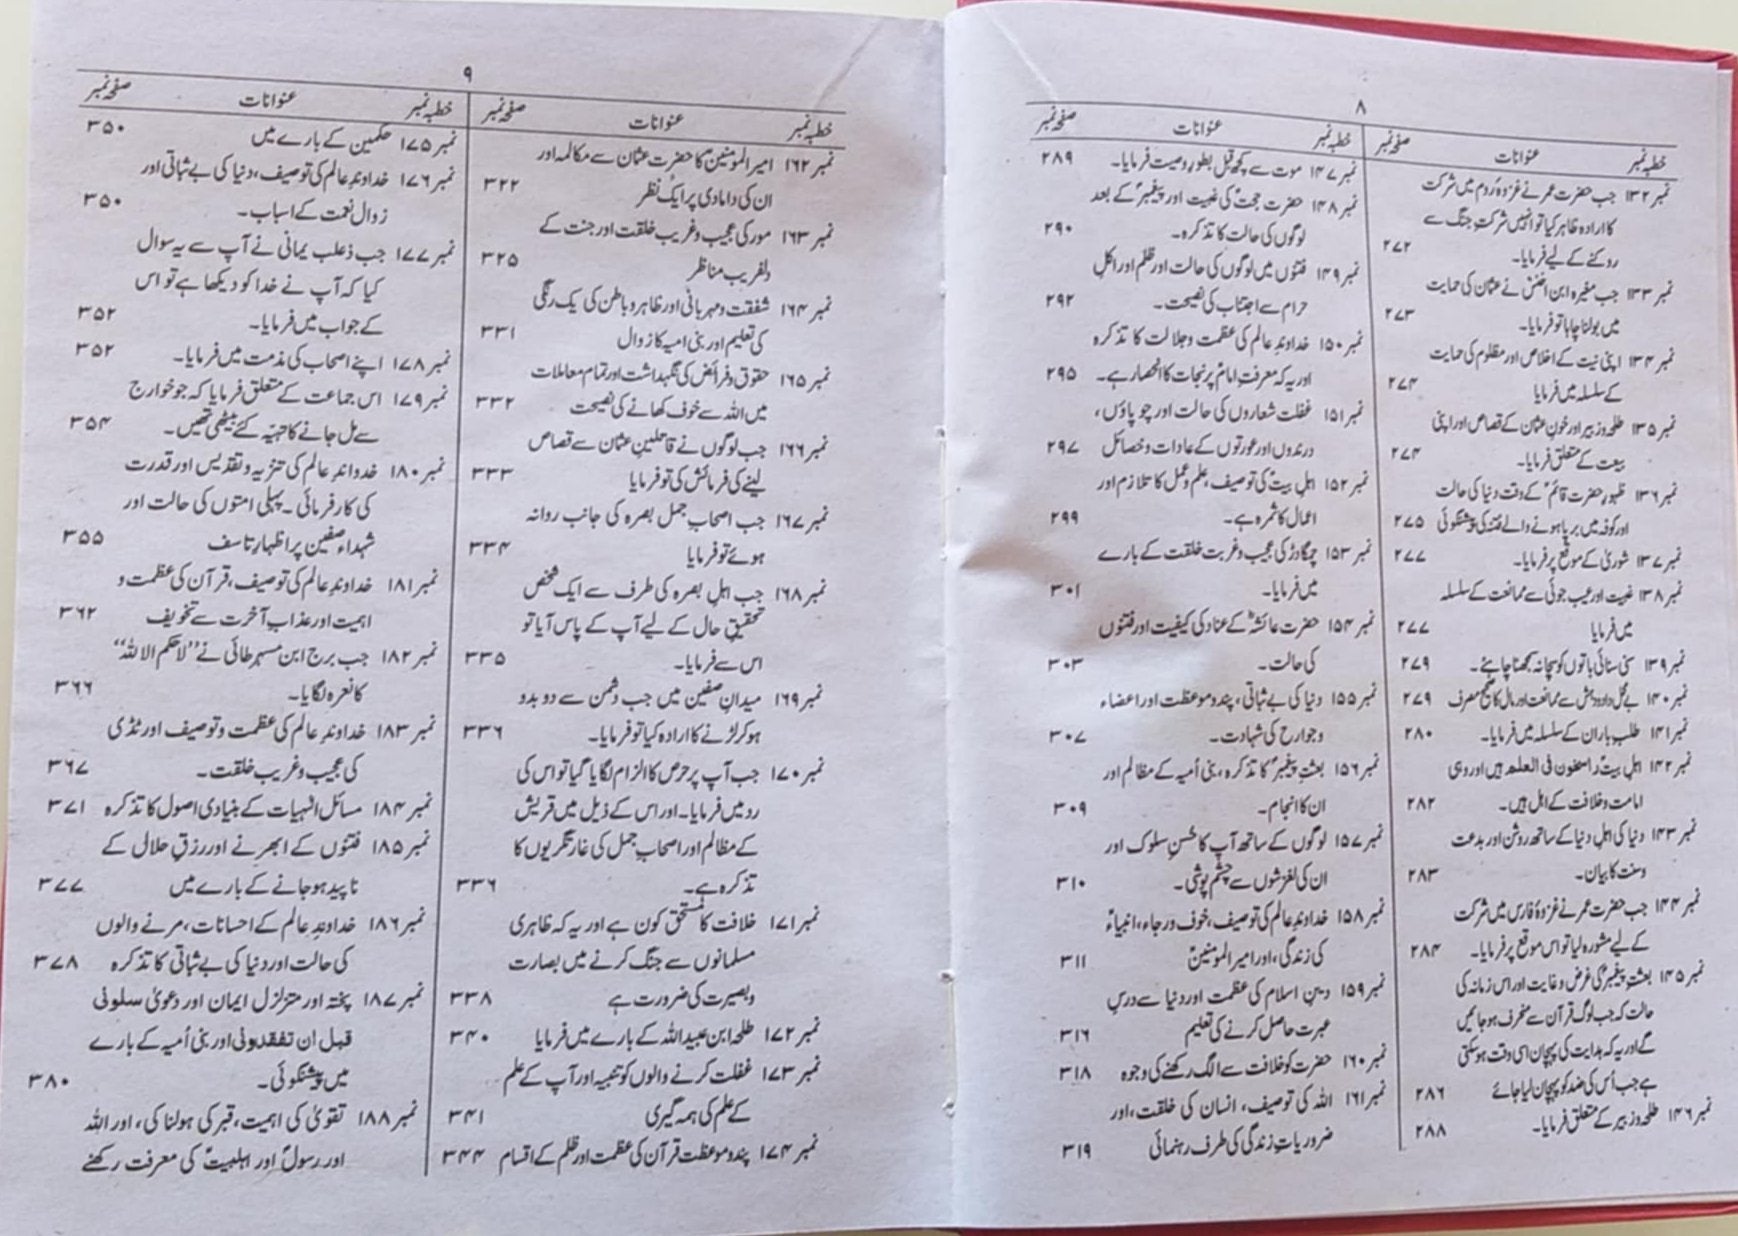 ۸
خطبہ نمبر عنوانات صفحہ نمبر
نمبر ۱۳۲ جب حضرت عمر نے غزوۂ روم میں شرکت
کا ارادہ ظاہر کیا تو انہیں شرکتِ جنگ سے
روکنے کے لیے فرمایا۔ ۲۷۲
نمبر ۱۳۳ جب مغیرہ ابن اخنس نے عثمان کی حمایت
میں بولنا چاہا تو فرمایا۔ ۲۷۳
نمبر ۱۳۴ اپنی نیت کے اخلاص اور مظلوم کی حمایت
کے سلسلہ میں فرمایا ۲۷۴
نمبر ۱۳۵ طلحہ و زبیر اور خونِ عثمان کے قصاص اور اپنی
بیعت کے متعلق فرمایا۔ ۲۷۴
نمبر ۱۳۶ ظہورِ حضرت قائمؑ کے وقت دنیا کی حالت
اور کوفہ میں برپا ہونے والے فتنہ کی پیشنگوئی ۲۷۵
نمبر ۱۳۷ شوریٰ کے موقع پر فرمایا۔ ۲۷۷
نمبر ۱۳۸ غیبت اور عیب جوئی سے ممانعت کے سلسلہ
میں فرمایا ۲۷۷
نمبر ۱۳۹ سنی سنائی باتوں کو سچا نہ سمجھنا چاہئے۔ ۲۷۹
نمبر ۱۴۰ بے محل داد و دہش سے ممانعت اور مال کا صحیح مصرف ۲۷۹
نمبر ۱۴۱ طلبِ باران کے سلسلہ میں فرمایا۔ ۲۸۰
نمبر ۱۴۲ اہلِ بیتؑ راسخون فی العلم ہیں اور وہی
امامت و خلافت کے اہل ہیں۔ ۲۸۲
نمبر ۱۴۳ دنیا کی اہلِ دنیا کے ساتھ روش اور بدعت
و سنت کا بیان۔ ۲۸۳
نمبر ۱۴۴ جب حضرت عمر نے غزوۂ فارس میں شرکت
کے لیے مشورہ لیا تو اس موقع پر فرمایا۔ ۲۸۴
نمبر ۱۴۵ بعثتِ پیغمبرؐ کی غرض و غایت اور اس زمانہ کی
حالت کہ جب لوگ قرآن سے منحرف ہو جائیں
گے اور یہ کہ ہدایت کی پہچان اسی وقت ہو سکتی
ہے جب اُس کی ضد کو پہچان لیا جائے ۲۸۶
نمبر ۱۴۶ طلحہ و زبیر کے متعلق فرمایا۔ ۲۸۸
خطبہ نمبر عنوانات صفحہ نمبر
نمبر ۱۴۷ موت سے کچھ قبل بطورِ وصیت فرمایا۔ ۲۸۹
نمبر ۱۴۸ حضرت حجتؑ کی غیبت اور پیغمبرؐ کے بعد
لوگوں کی حالت کا تذکرہ۔ ۲۹۰
نمبر ۱۴۹ فتنوں میں لوگوں کی حالت اور ظلم اور اکلِ
حرام سے اجتناب کی نصیحت۔ ۲۹۲
نمبر ۱۵۰ خداوندِ عالم کی عظمت و جلالت کا تذکرہ
اور یہ کہ معرفتِ امامؑ پر نجات کا انحصار ہے۔ ۲۹۵
نمبر ۱۵۱ غفلت شعاروں کی حالت اور چوپاؤں،
درندوں اور عورتوں کے عادات و خصائل ۲۹۷
نمبر ۱۵۲ اہلِ بیتؑ کی توصیف، علم و عمل کا تلازم اور
اعمال کا ثمرہ ہے۔ ۲۹۹
نمبر ۱۵۳ چمگادڑ کی عجیب و غریب خلقت کے بارے
میں فرمایا۔ ۳۰۱
نمبر ۱۵۴ حضرت عائشہؓ کے عناد کی کیفیت اور فتنوں
کی حالت۔ ۳۰۳
نمبر ۱۵۵ دنیا کی بے ثباتی، پند و موعظت اور اعضاء
و جوارح کی شہادت۔ ۳۰۷
نمبر ۱۵۶ بعثتِ پیغمبرؐ کا تذکرہ، بنی اُمیہ کے مظالم اور
ان کا انجام۔ ۳۰۹
نمبر ۱۵۷ لوگوں کے ساتھ آپ کا حُسنِ سلوک اور
ان کی لغزشوں سے چشم پوشی۔ ۳۱۰
نمبر ۱۵۸ خداوندِ عالم کی توصیف، خوف و رجاء، انبیاءؑ
کی زندگی، اور امیر المومنینؑ ۳۱۱
نمبر ۱۵۹ دینِ اسلام کی عظمت اور دنیا سے درسِ
عبرت حاصل کرنے کی تعلیم ۳۱۶
نمبر ۱۶۰ حضرت کو خلافت سے الگ رکھنے کی وجوہ ۳۱۸
نمبر ۱۶۱ اللہ کی توصیف، انسان کی خلقت، اور
ضروریاتِ زندگی کی طرف رہنمائی ۳۱۹
۹
خطبہ نمبر عنوانات صفحہ نمبر
نمبر ۱۶۲ امیر المومنینؑ کا حضرت عثمان سے مکالمہ اور
ان کی دامادی پر ایک نظر ۳۲۲
نمبر ۱۶۳ مور کی عجیب و غریب خلقت اور جنت کے
دلفریب مناظر ۳۲۵
نمبر ۱۶۴ شفقت و مہربانی اور ظاہر و باطن کی یک رنگی
کی تعلیم اور بنی امیہ کا زوال ۳۳۱
نمبر ۱۶۵ حقوق و فرائض کی نگہداشت اور تمام معاملات
میں اللہ سے خوف کھانے کی نصیحت ۳۳۲
نمبر ۱۶۶ جب لوگوں نے قاتلینِ عثمان سے قصاص
لینے کی فرمائش کی تو فرمایا ۳۳۳
نمبر ۱۶۷ جب اصحابِ جمل بصرہ کی جانب روانہ
ہوئے تو فرمایا ۳۳۴
نمبر ۱۶۸ جب اہلِ بصرہ کی طرف سے ایک شخص
تحقیقِ حال کے لیے آپ کے پاس آیا تو
اس سے فرمایا۔ ۳۳۵
نمبر ۱۶۹ میدانِ صفین میں جب دشمن سے دوبدو
ہو کر لڑنے کا ارادہ کیا تو فرمایا۔ ۳۳۶
نمبر ۱۷۰ جب آپ پر حرص کا الزام لگایا گیا تو اس کی
رد میں فرمایا۔ اور اس کے ذیل میں قریش
کے مظالم اور اصحابِ جمل کی غارتگریوں کا
تذکرہ ہے۔ ۳۳۶
نمبر ۱۷۱ خلافت کا مستحق کون ہے اور یہ کہ ظاہری
مسلمانوں سے جنگ کرنے میں بصارت
و بصیرت کی ضرورت ہے ۳۳۸
نمبر ۱۷۲ طلحہ ابن عبید اللہ کے بارے میں فرمایا ۳۴۰
نمبر ۱۷۳ غفلت کرنے والوں کو تنبیہ اور آپ کے علم
کے علم کی ہمہ گیری ۳۴۱
نمبر ۱۷۴ پند و موعظت قرآن کی عظمت اور ظلم کے اقسام ۳۴۴
خطبہ نمبر عنوانات صفحہ نمبر
نمبر ۱۷۵ حکمین کے بارے میں ۳۵۰
نمبر ۱۷۶ خداوندِ عالم کی توصیف، دنیا کی بے ثباتی اور
زوالِ نعمت کے اسباب۔ ۳۵۰
نمبر ۱۷۷ جب ذعلب یمانی نے آپ سے یہ سوال
کیا کہ آپ نے خدا کو دیکھا ہے تو اس
کے جواب میں فرمایا۔ ۳۵۲
نمبر ۱۷۸ اپنے اصحاب کی مذمت میں فرمایا۔ ۳۵۲
نمبر ۱۷۹ اس جماعت کے متعلق فرمایا کہ جو خوارج
سے مل جانے کا تہیّہ کئے بیٹھی تھیں۔ ۳۵۴
نمبر ۱۸۰ خداوندِ عالم کی تنزیہ و تقدیس اور قدرت
کی کارفرمائی۔ پہلی امتوں کی حالت اور
شہداءِ صفین پر اظہارِ تاسف ۳۵۵
نمبر ۱۸۱ خداوندِ عالم کی توصیف، قرآن کی عظمت و
اہمیت اور عذابِ آخرت سے تخویف ۳۶۲
نمبر ۱۸۲ جب برج ابن مسہر طائی نے ”لا حکم الا للہ“
کا نعرہ لگایا۔ ۳۶۶
نمبر ۱۸۳ خداوندِ عالم کی عظمت و توصیف اور ٹڈی
کی عجیب و غریب خلقت۔ ۳۶۷
نمبر ۱۸۴ مسائلِ الٰہیات کے بنیادی اصول کا تذکرہ ۳۷۱
نمبر ۱۸۵ فتنوں کے ابھرنے اور رزقِ حلال کے
ناپید ہو جانے کے بارے میں ۳۷۷
نمبر ۱۸۶ خداوندِ عالم کے احسانات، مرنے والوں
کی حالت اور دنیا کی بے ثباتی کا تذکرہ ۳۷۸
نمبر ۱۸۷ پختہ اور متزلزل ایمان اور دعویٰ سلونی
قبل ان تفقدونی اور بنی اُمیہ کے بارے
میں پیشنگوئی۔ ۳۸۰
نمبر ۱۸۸ تقویٰ کی اہمیت، قبر کی ہولناکی، اور اللہ
اور رسولؐ اور اہلبیتؑ کی معرفت رکھنے